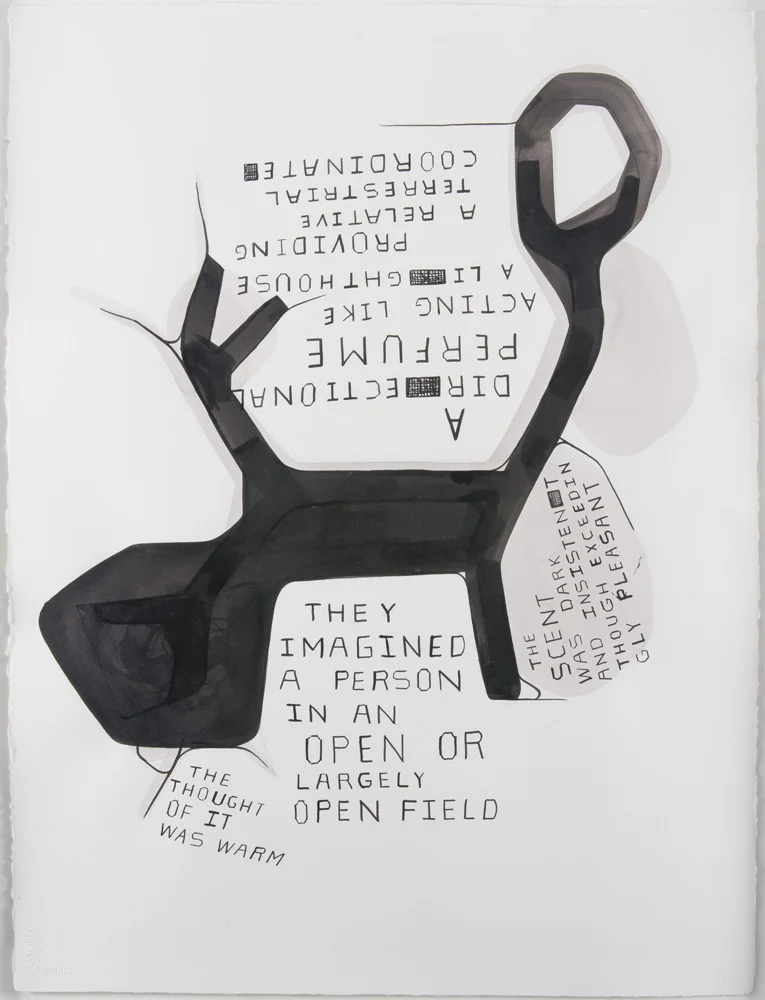 A
DIRECTIONAL
PERFUME
ACTING LIKE
A LIGHTHOUSE
PROVIDING
A RELATIVE
TERRESTRIAL
COORDINATE
THE
SCENT
WAS DARK
AND INSISTENT
THOUGH EXCEEDIN
GLY PLEASANT
THEY
IMAGINED
A PERSON
IN AN
OPEN OR
LARGELY
OPEN FIELD
THE
THOUGHT
OF IT
WAS WARM